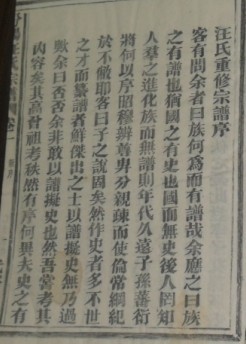 汪氏重修宗譜序
客有問余者曰族何為而有譜哉余應之曰族
之有譜也猶國之有史也國而無史後人罔知
人羣之進化族而無譜則年代久遠子孫蕃衍
將何以序昭穆辨尊卑分親疎而使倫常綱紀
於不敝耶客曰子之說固矣然作史者多不世
之才而纂譜者鮮傑出之士以譜擬史無乃過
歟余曰否否余非敢以譜擬史也然吾嘗考其
內容矣其高曾祖考秩然有序何異夫史之有
汪氏宗譜
卷